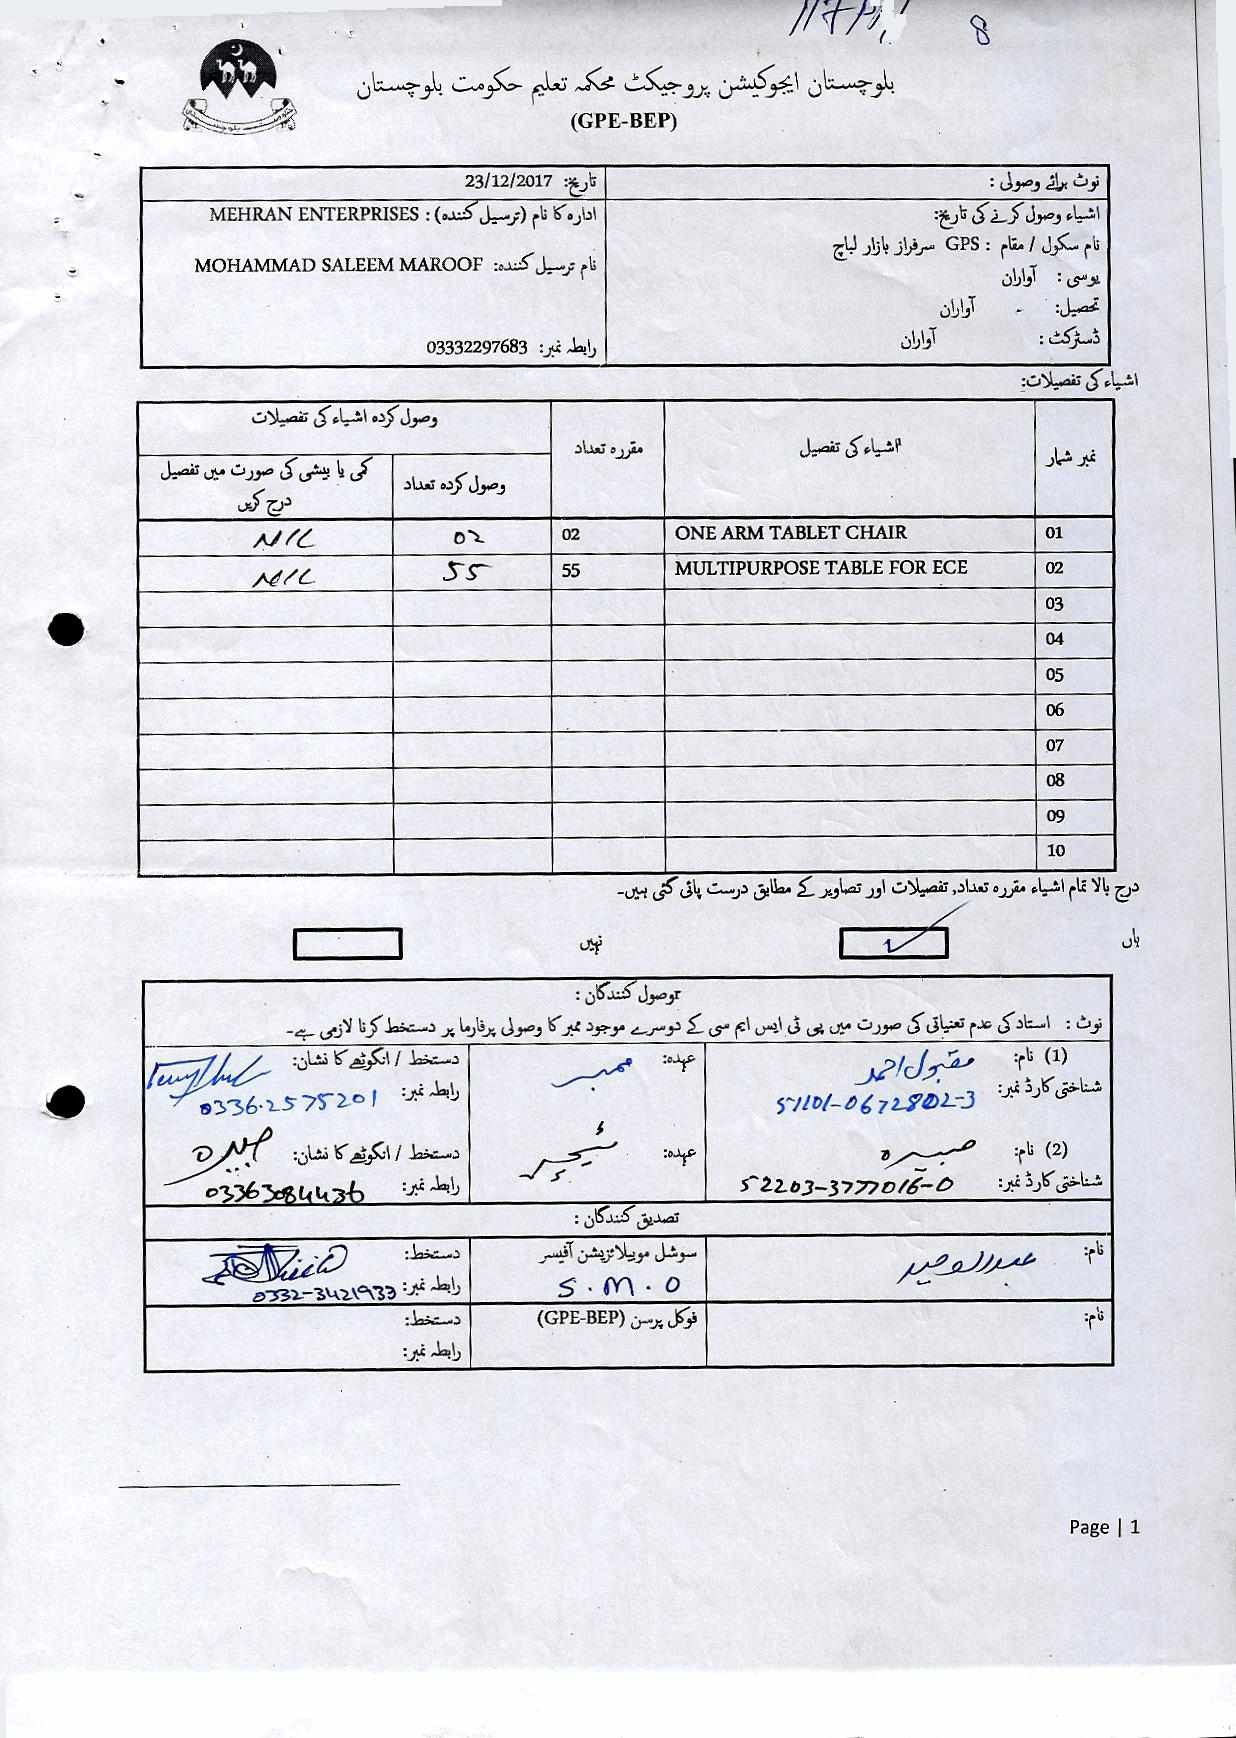 8
بلوچستان ایجوکیشن پروجیکٹ محکمہ تعلیم حکومت بلوچستان
(GPE-BEP)
نوٹ برائے وصولی :
تاریخ: 23/12/2017
اشیاء وصول کرنے کی تاریخ:
نام سکول / مقام : GPS سرفراز بازار لباچ
یوسی : آواران
تحصیل: - آواران
ڈسٹرکٹ : آواران
ادارہ کا نام (ترسیل کنندہ) : MEHRAN ENTERPRISES
نام ترسیل کنندہ: MOHAMMAD SALEEM MAROOF
رابطہ نمبر: 03332297683
اشیاء کی تفصیلات:
نمبر شمار اشیاء کی تفصیل مقررہ تعداد وصول کردہ اشیاء کی تفصیلات
وصول کردہ تعداد کمی یا بیشی کی صورت میں تفصیل درج کریں
01 ONE ARM TABLET CHAIR 02 02 NIL
02 MULTIPURPOSE TABLE FOR ECE 55 55 NIL
03
04
05
06
07
08
09
10
درج بالا تمام اشیاء مقررہ تعداد, تفصیلات اور تصاویر کے مطابق درست پائی گئی ہیں۔
ہاں ✓ نہیں
وصول کنندگان :
نوٹ : استاد کی عدم تعنیاتی کی صورت میں پی ٹی ایس ایم سی کے دوسرے موجود ممبر کا وصولی پرفارما پر دستخط کرنا لازمی ہے۔
(1) نام: مقبول احمد عہدہ: ممبر دستخط / انگوٹھے کا نشان:
شناختی کارڈ نمبر: 51101-0672802-3 رابطہ نمبر: 0336-2575201
(2) نام: صبیرہ عہدہ: ٹیچر دستخط / انگوٹھے کا نشان: صبیرہ
شناختی کارڈ نمبر: 52203-3777016-0 رابطہ نمبر: 03363084436
تصدیق کنندگان :
نام: عبدالوحید سوشل موبیلائزیشن آفیسر S.M.O دستخط:
رابطہ نمبر: 0332-3421933
نام: فوکل پرسن (GPE-BEP) دستخط:
رابطہ نمبر:
Page | 1